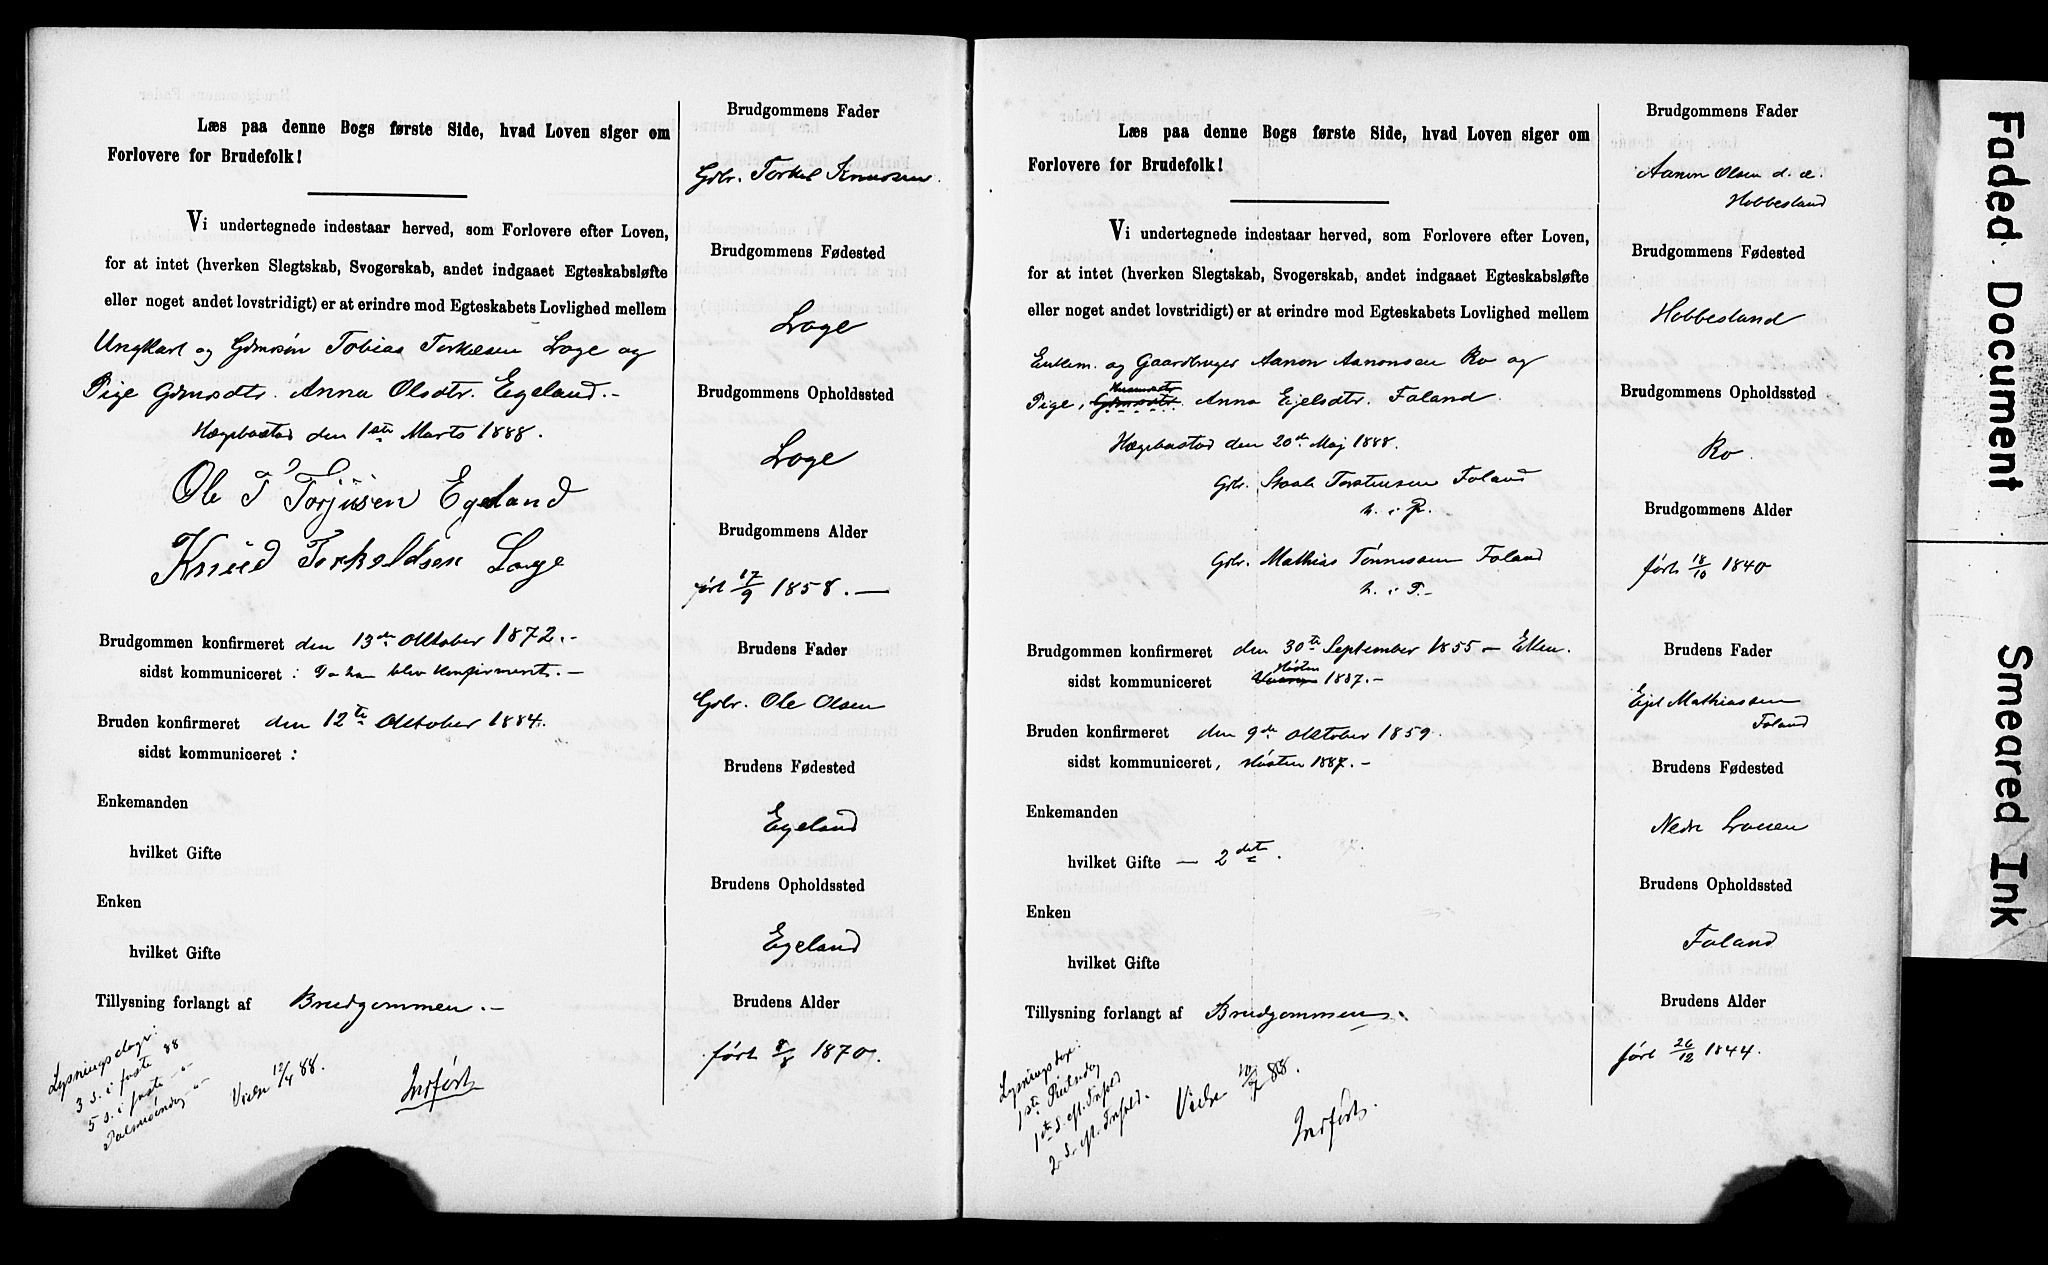 Læs paa denne Bogs første Side, hvad Loven siger om
Forlovere for Brudefolk!
Vi undertegnede indestaar herved, som Forlovere efter Loven,
for at intet (hverken Slegtskab, Svogerskab, andet indgaaet Egteskabsløfte
eller noget andet lovstridigt) er at erindre mod Egteskabets Lovlighed mellem
Ungkarl og Gdmsøn Tobias Torkelsen Loge og
Pige Gdmsdtr. Anna Olsdtr. Egeland.-
Hægebostad den 1ste Marts 1888.
Ole T Torjusen Egeland
Knud Torkeldsen Loge
Brudgommen konfirmeret den 13de Oktober 1872.-
sidst kommuniceret : Da han blev konfirmeret.-
Bruden konfirmeret den 12te Oktober 1884.
sidst kommuniceret :
Enkemanden
hvilket Gifte
Enken
hvilket Gifte
Tillysning forlangt af Brudgommen.-
Lysningsdage:
3 S. i faste 88
5 S. i faste -"-
Palmesöndag -"-
Viede 12/4 88.
Indført
Brudgommens Fader
Gdbr. Torkel Knudsen.
Brudgommens Fødested
Loge
Brudgommens Opholdssted
Loge
Brudgommens Alder
født 17/9 1858.-
Brudens Fader
Gdbr. Ole Olsen
Brudens Fødested
Egeland
Brudens Opholdssted
Egeland
Brudens Alder
født 8/8 1870.
Læs paa denne Bogs første Side, hvad Loven siger om
Forlovere for Brudefolk!
Vi undertegnede indestaar herved, som Forlovere efter Loven,
for at intet (hverken Slegtskab, Svogerskab, andet indgaaet Egteskabsløfte
eller noget andet lovstridigt) er at erindre mod Egteskabets Lovlighed mellem
Enkem. og Gaardbruger Aanon Aanonsen Ro og
Pige, Gdmsdtr. Anna Ejelsdtr. Foland.
Hægebostad den 20de Maj 1888.
Gdbr. Torstensen Foland
m. i P.
Gdbr. Mathias Tønnessen Foland
m. i P.-
Brudgommen konfirmeret den 30te September 1855 -
sidst kommuniceret Høsten 1887.-
Bruden konfirmeret den 9de Oktober 1859.
sidst kommuniceret, Høsten 1887.-
Enkemanden
hvilket Gifte - 2det.
Enken
hvilket Gifte
Tillysning forlangt af Brudgommen.
1ste Pintsedag
1ste S. eft. Trefold
2 S. eft. Trefold.
Viede 10/7 88.
Indført.
Brudgommens Fader
Aanon Olsen
Hobbesland
Brudgommens Fødested
Hobbesland
Brudgommens Opholdssted
Ro
Brudgommens Alder
født 18/10 1840
Brudens Fader
Ejel Mathiassen
Foland
Brudens Fødested
Nedre
Brudens Opholdssted
Foland
Brudens Alder
født 26/12 1844.
Faded Document
Smeared Ink